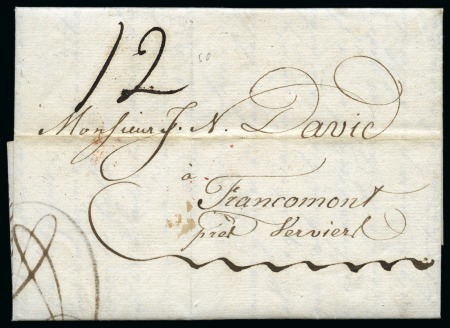 12
50
Monsieur J. N. David
à
Francomont
près Verviers